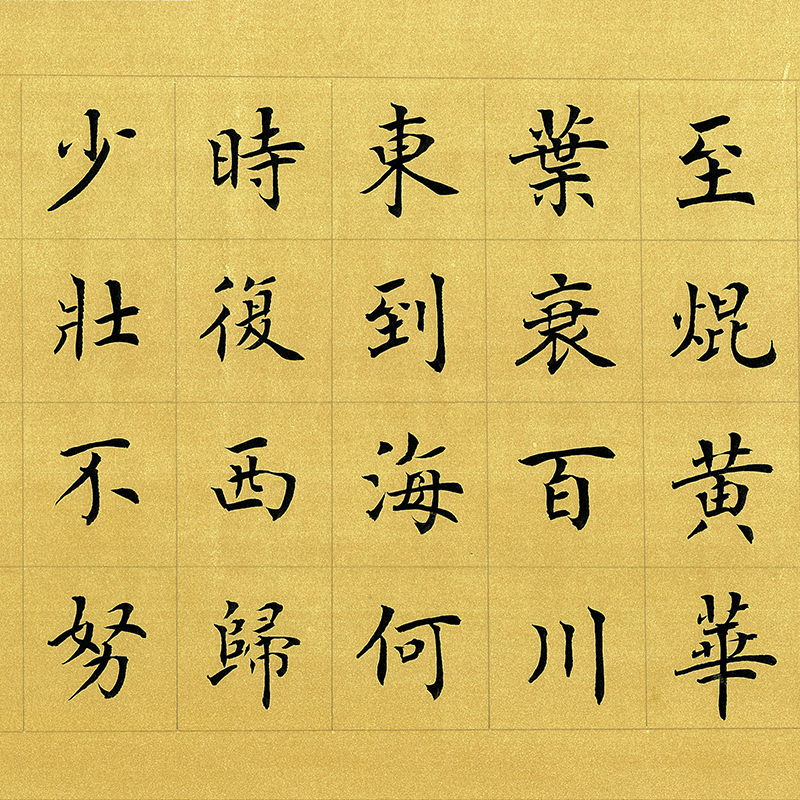 至焜黄華
葉衰百川
東到海何
時復西歸
少壯不努